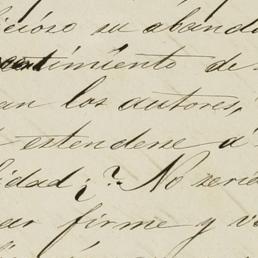 icioso su abando
timiento de
an los autores,
estenderse á
lidad; ? No seria
ar firme y v